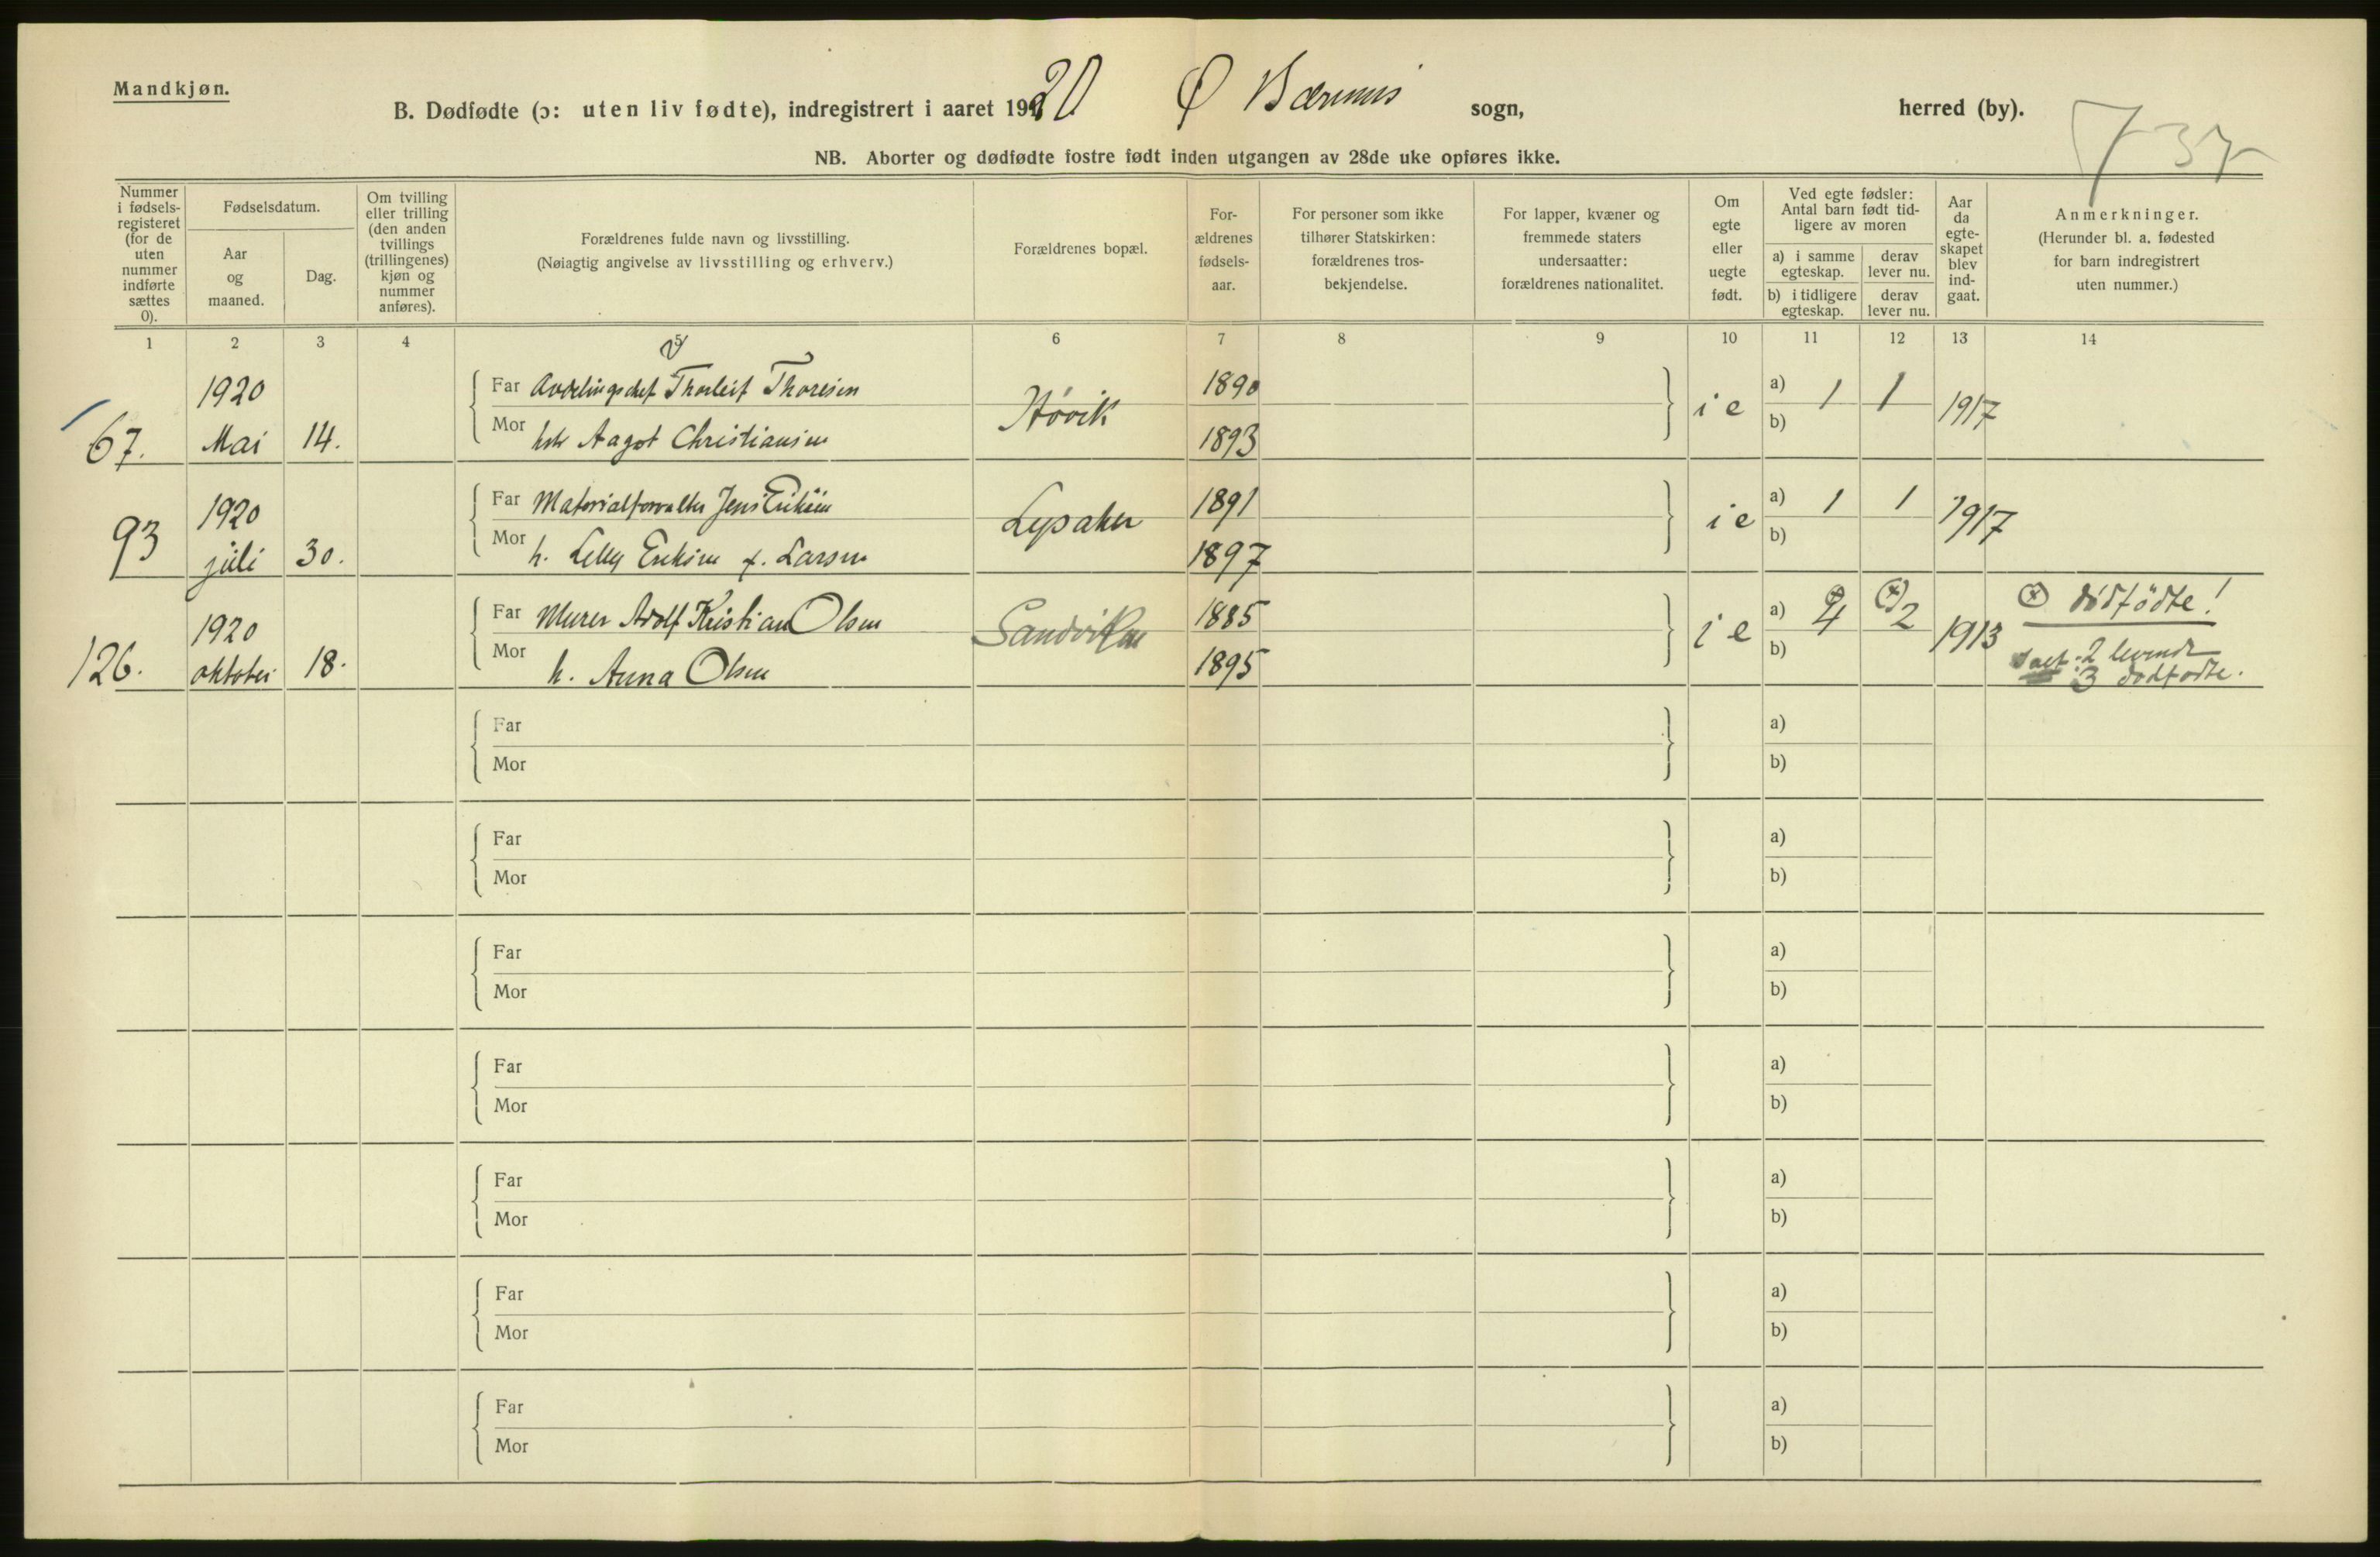 Mandkjøn.
B. Dødfødte (ɔ: uten liv fødte), indregistrert i aaret 1920 Ø Bærums sogn, herred (by).
NB. Aborter og dødfødte fostre født inden utgangen av 28de uke opføres ikke.
Nummer i fødsels-registeret (for de uten nummer indførte sættes 0).
Fødselsdatum.
Aar og maaned.
Dag.
Om tvilling eller trilling (den anden tvillings (trillingenes) kjøn og nummer anføres).
Forældrenes fulde navn og livsstilling.
(Nøiagtig angivelse av livsstilling og erhverv.)
Forældrenes bopæl.
For-ældrenes fødsels-aar.
For personer som ikke tilhører Statskirken: forældrenes tros-bekjendelse.
For lapper, kvæner og fremmede staters undersaatter: forældrenes nationalitet.
Om egte eller uegte født.
Ved egte fødsler: Antal barn født tid-ligere av moren
a) i samme egteskap. derav lever nu.
b) i tidligere egteskap. derav lever nu.
Aar da egte-skapet blev ind-gaat.
Anmerkninger.
(Herunder bl. a. fødested for barn indregistrert uten nummer.)
1 2 3 4 5 6 7 8 9 10 11 12 13 14
67. 1920 Mai 14.
Far Avdelingschef Thorleif Thoresen 1890
Mor Aagot Christiansen 1893
Høvik
i e a) 1 1 1917
b)
93 1920 juli 30.
Far Materialforvalter Jens Eriksen 1891
Mor h. Lelly Eriksen f. Larsen 1897
Lysaker
i e a) 1 1 1917
b)
126. 1920 oktober 18.
Far Murer Adolf Kristian Olsen 1885
Mor h. Anna Olsen 1895
Sandviken
i e a) 4 2 1913
b)
dödfödte!
2 levende
3 dødfødte.
Far
Mor
a)
b)
Far
Mor
a)
b)
Far
Mor
a)
b)
Far
Mor
a)
b)
Far
Mor
a)
b)
Far
Mor
a)
b)
Far
Mor
a)
b)